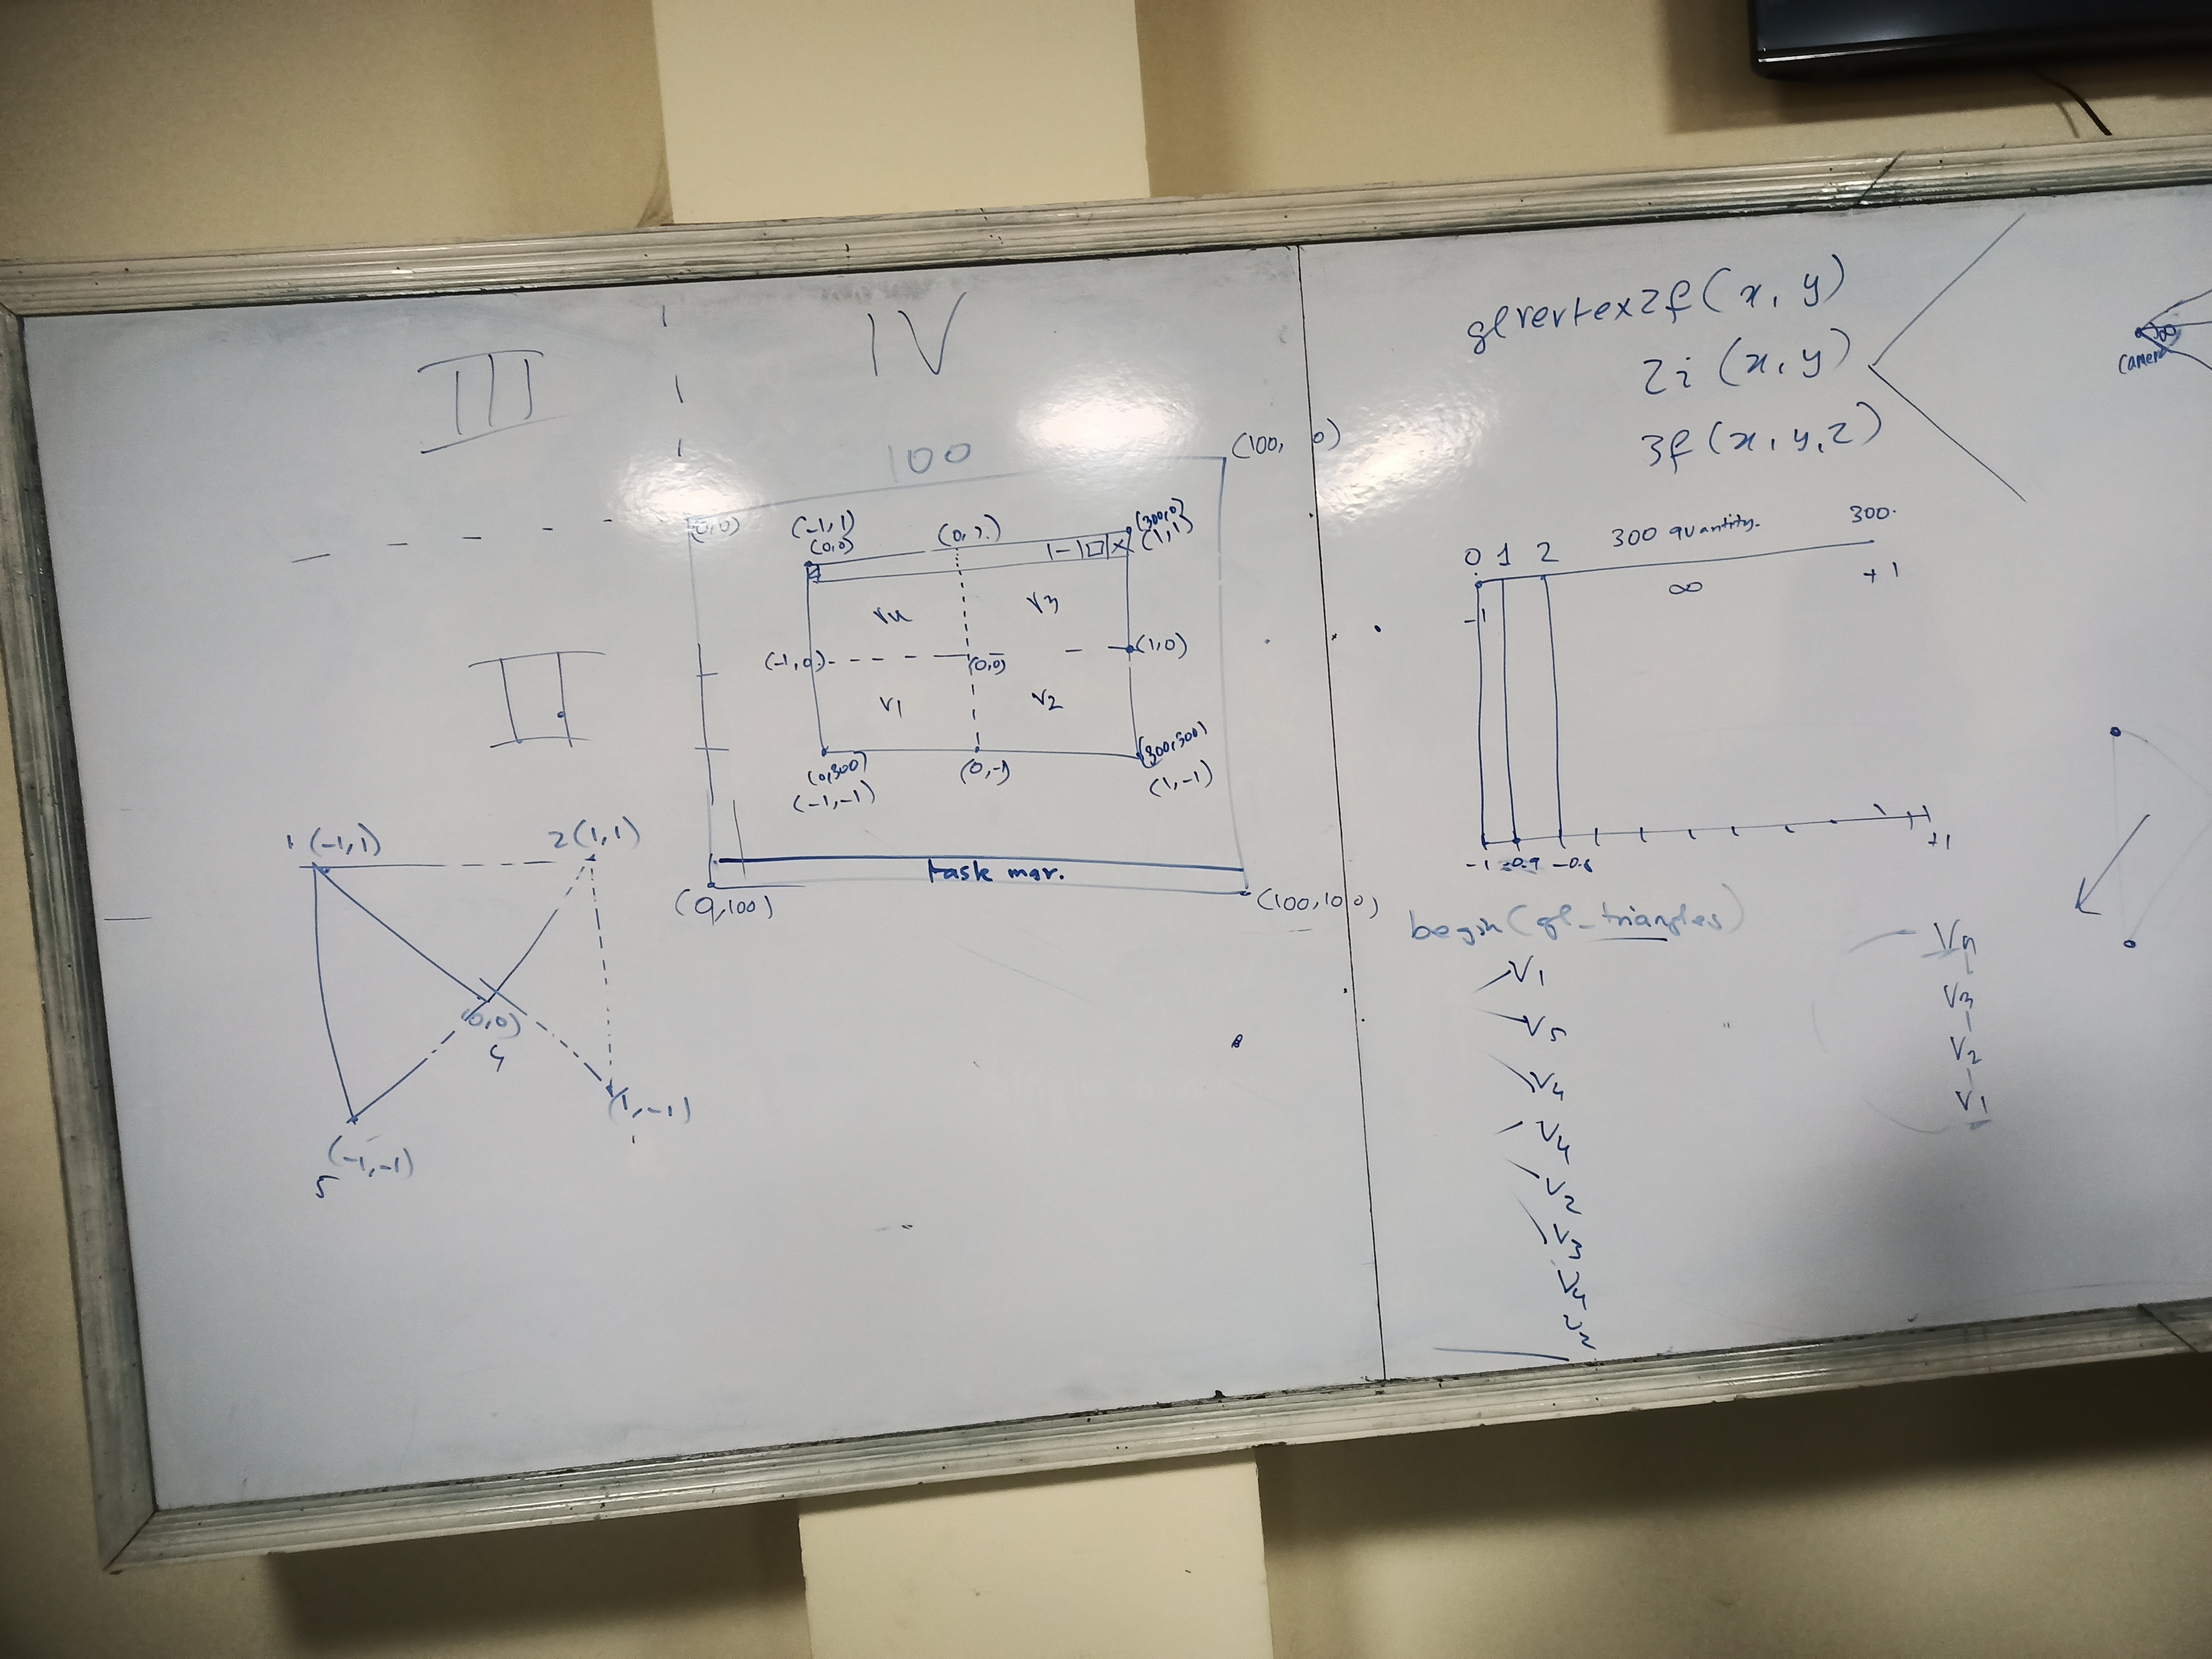 III
IV
100
(100, 0)
(0,0)
(-1,1)
(0,0)
(300,0)
(1,1)
V4
V3
(-1,0)
(0,0)
(1,0)
V1
V2
(0,300)
(-1,-1)
(0,-1)
(300,300)
(1,-1)
task mar.
(0,100)
(100,100)
II
1 (-1,1)
2 (1,1)
(0,0)
4
(1,-1)
(-1,-1)
5
glvertex2f (x, y)
2i (x, y)
3f (x, y, z)
camera
0 1 2 300 quantity. 300.
-1 ∞ +1
-1 -0.9 -0.8 +1
begin (gl_triangles)
V1
V5
V4
V4
V2
V3
V4
V4
V3
V2
V1